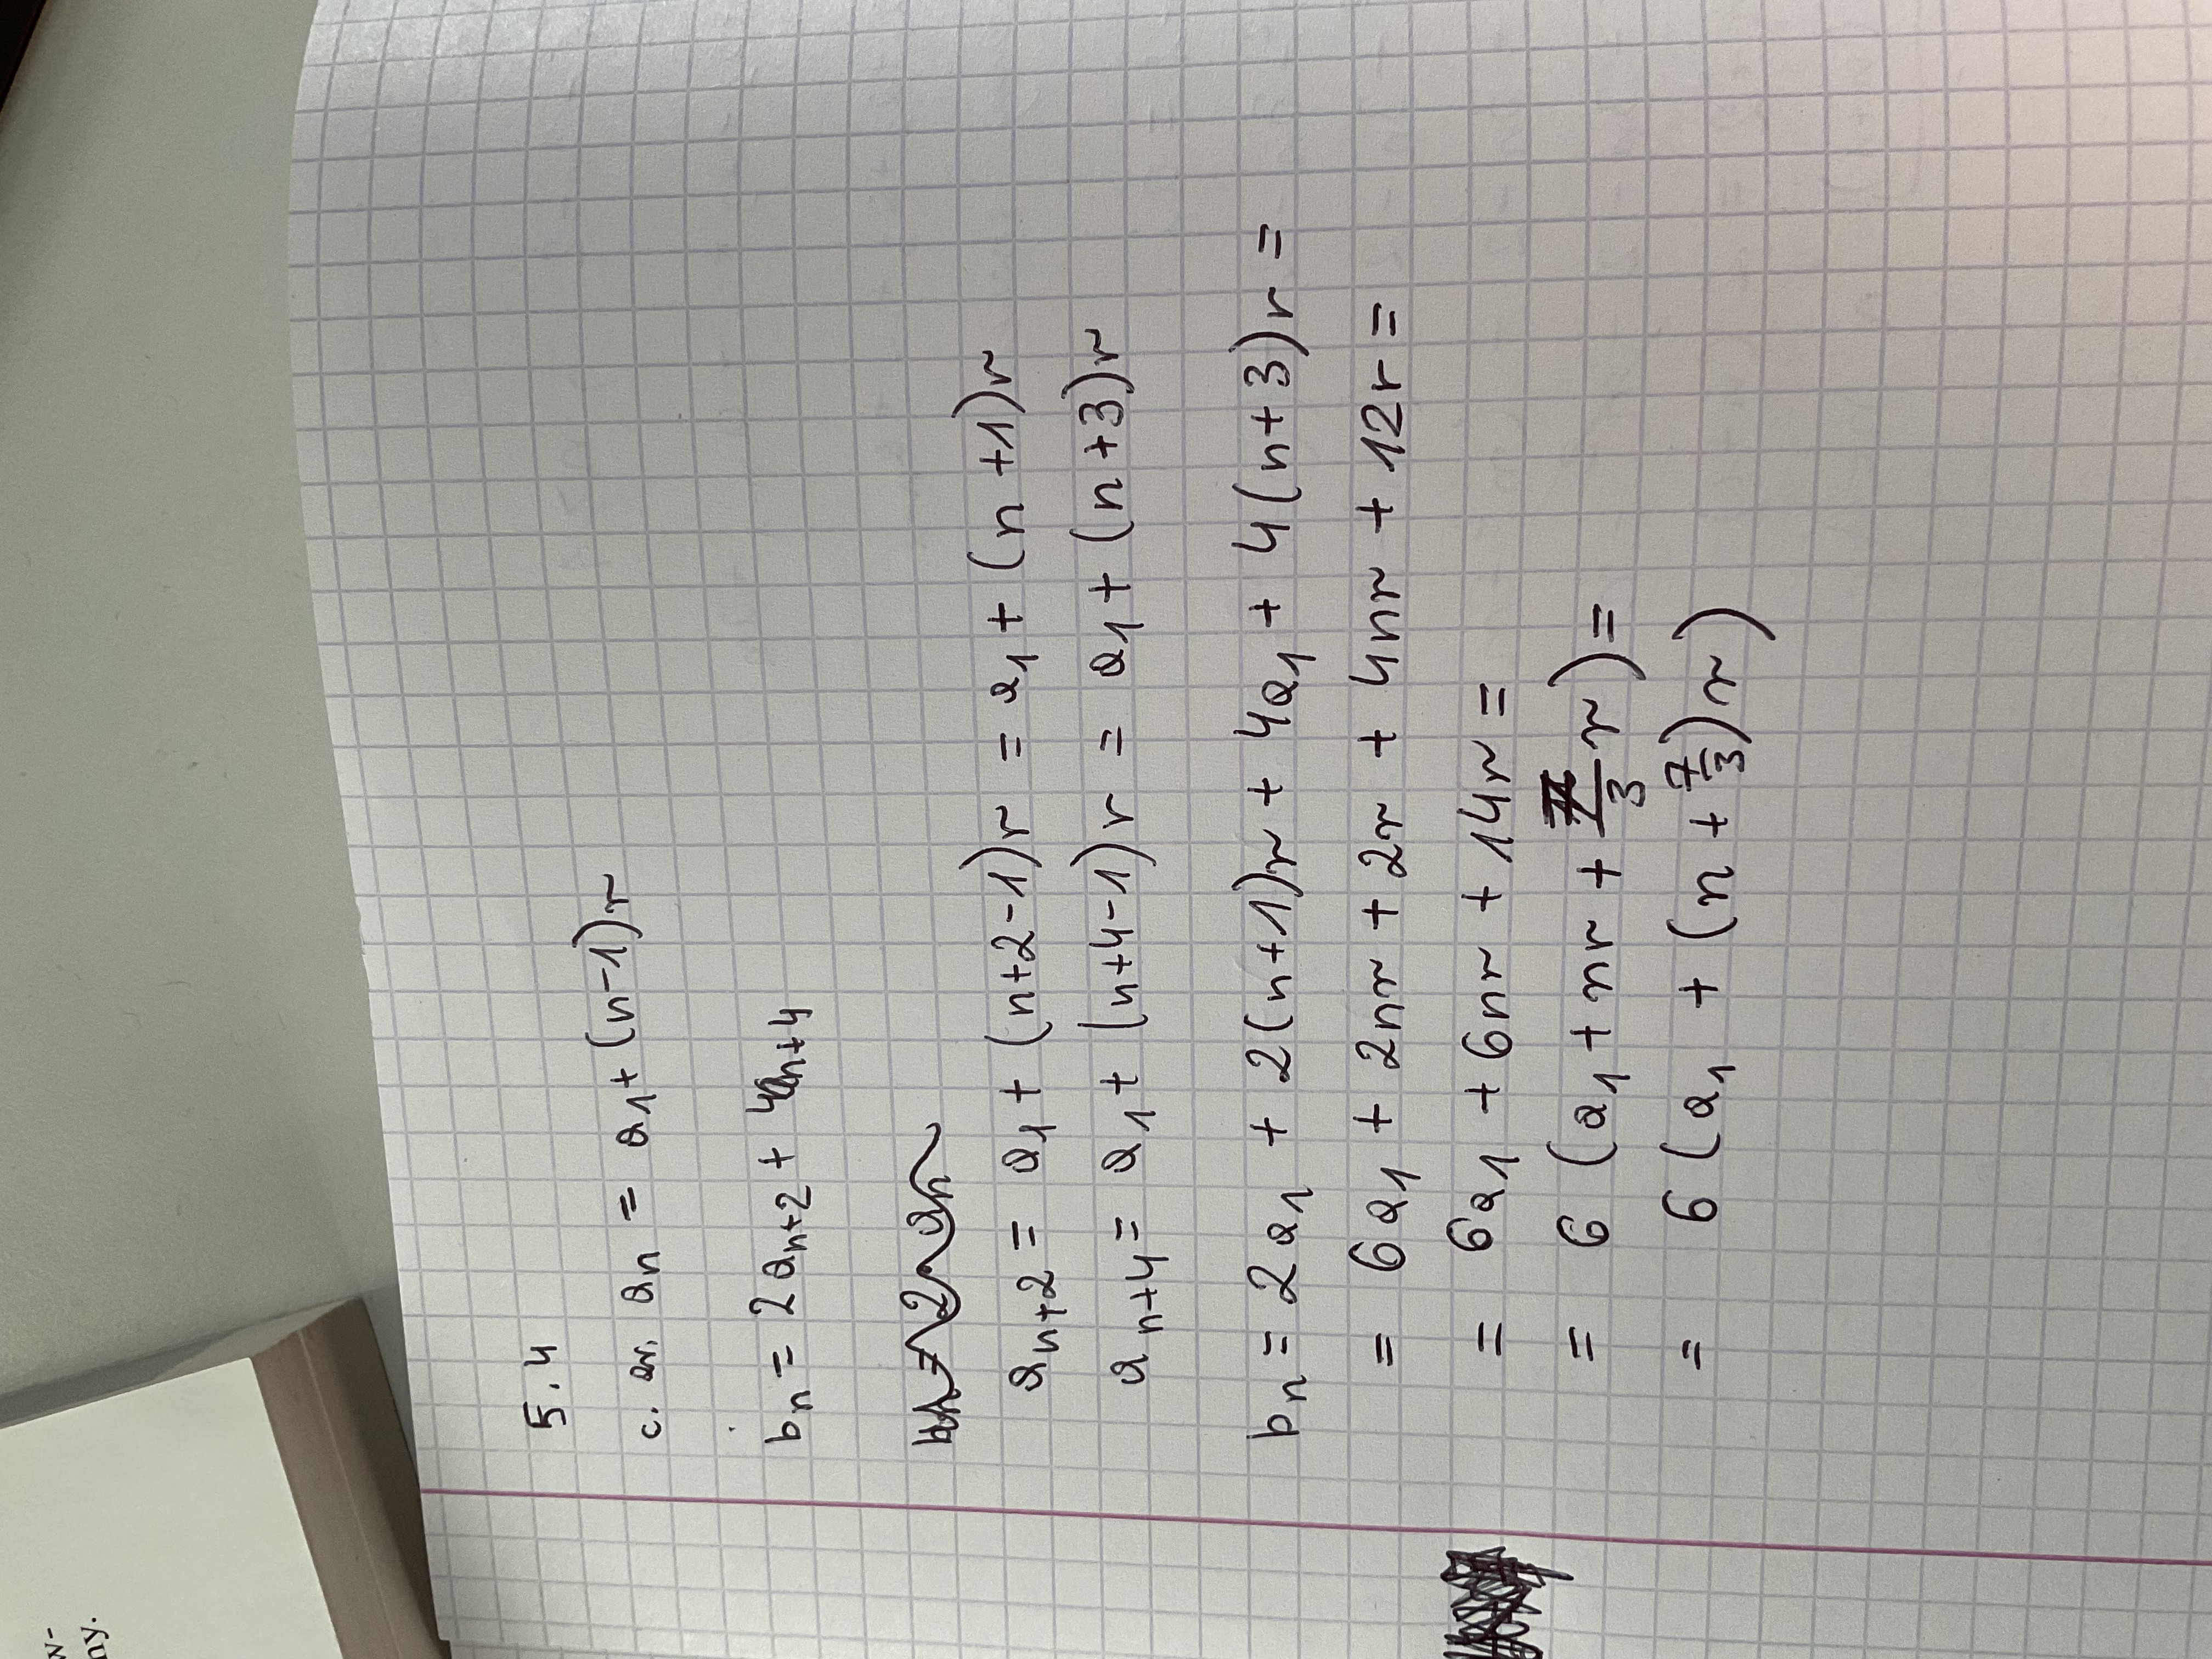 5.4
c. ar. aₙ = a₁ + (n-1)r
bₙ = 2aₙ₊₂ + 4aₙ₊₄
aₙ₊₂ = a₁ + (n+2-1)r = a₁ + (n+1)r
aₙ₊₄ = a₁ + (n+4-1)r = a₁ + (n+3)r
bₙ = 2a₁ + 2(n+1)r + 4a₁ + 4(n+3)r =
= 6a₁ + 2nr + 2r + 4nr + 12r =
= 6a₁ + 6nr + 14r =
= 6(a₁ + nr + 7/3 r) =
= 6(a₁ + (n + 7/3)r)
w-
ny.